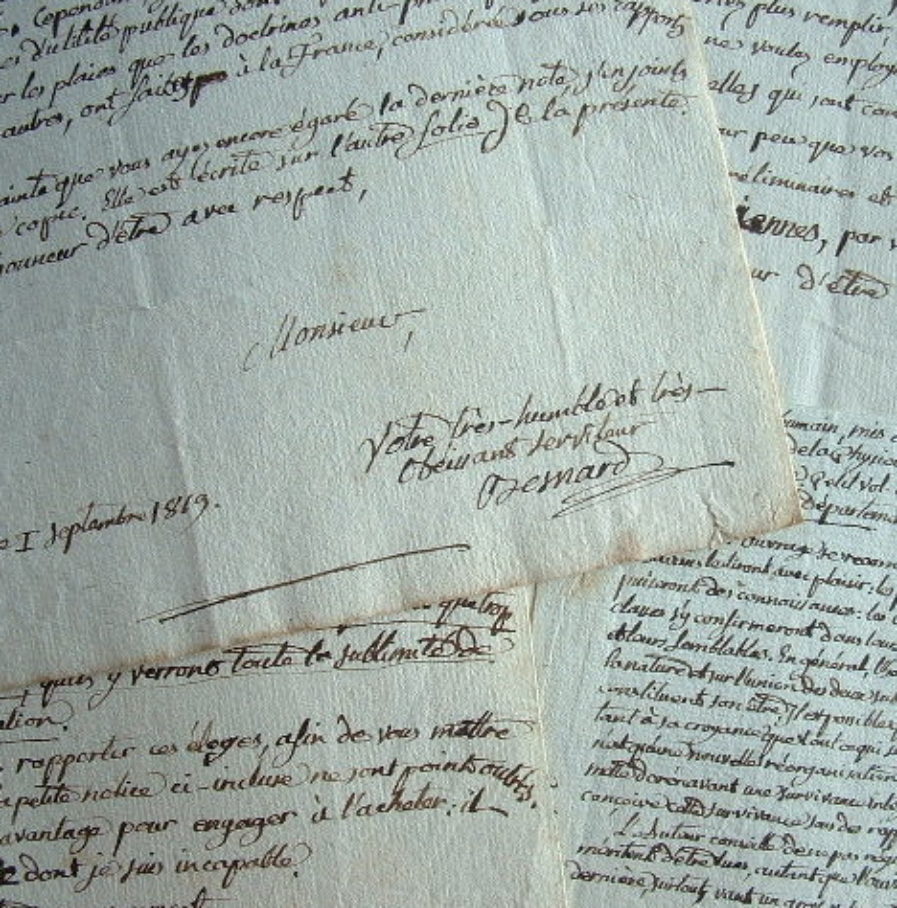 Cependant
d'utilité publique dont
les plaies que les doctrines anti-
autres, ont faites à la France, considérée sous ses rapports
que vous ayez encore égaré la dernière note, j'en joints
copie. Elle est écrite sur l'autre folio de la présente.
honneur d'être avec respect,
Monsieur,
Votre très-humble et très-
Obéissant serviteur
Besnard
I Septembre 1819.
plus remplir,
ne voulez
elles qui sont
peu que vos
préliminaires et
iennes, par
d'être
quatrop
, qui y verront toute la sublimité de
ation.
rapporter ces éloges, afin de vous mettre
petite notice ci-incluse ne sont points outrés.
avantage pour engager à l'acheter: il
dont je suis incapable.
humain, mis
de la
vol.
Départeme
ouvrage se recom
liront avec plaisir: les
puiseront des connaissances: les
classes s'y confirmeront dans
et leurs semblables. En général,
la nature et sur l'union des deux
constituent son être. Il est
tant à sa croyance que tout ce qui
n'est qu'une nouvelle réorganisation
mette dorénavant une survivance
conçoive cette survivance sans des
L'Auteur conseille de ne pas
méritent d'être lues, autant que
dernière, surtout, vaut un